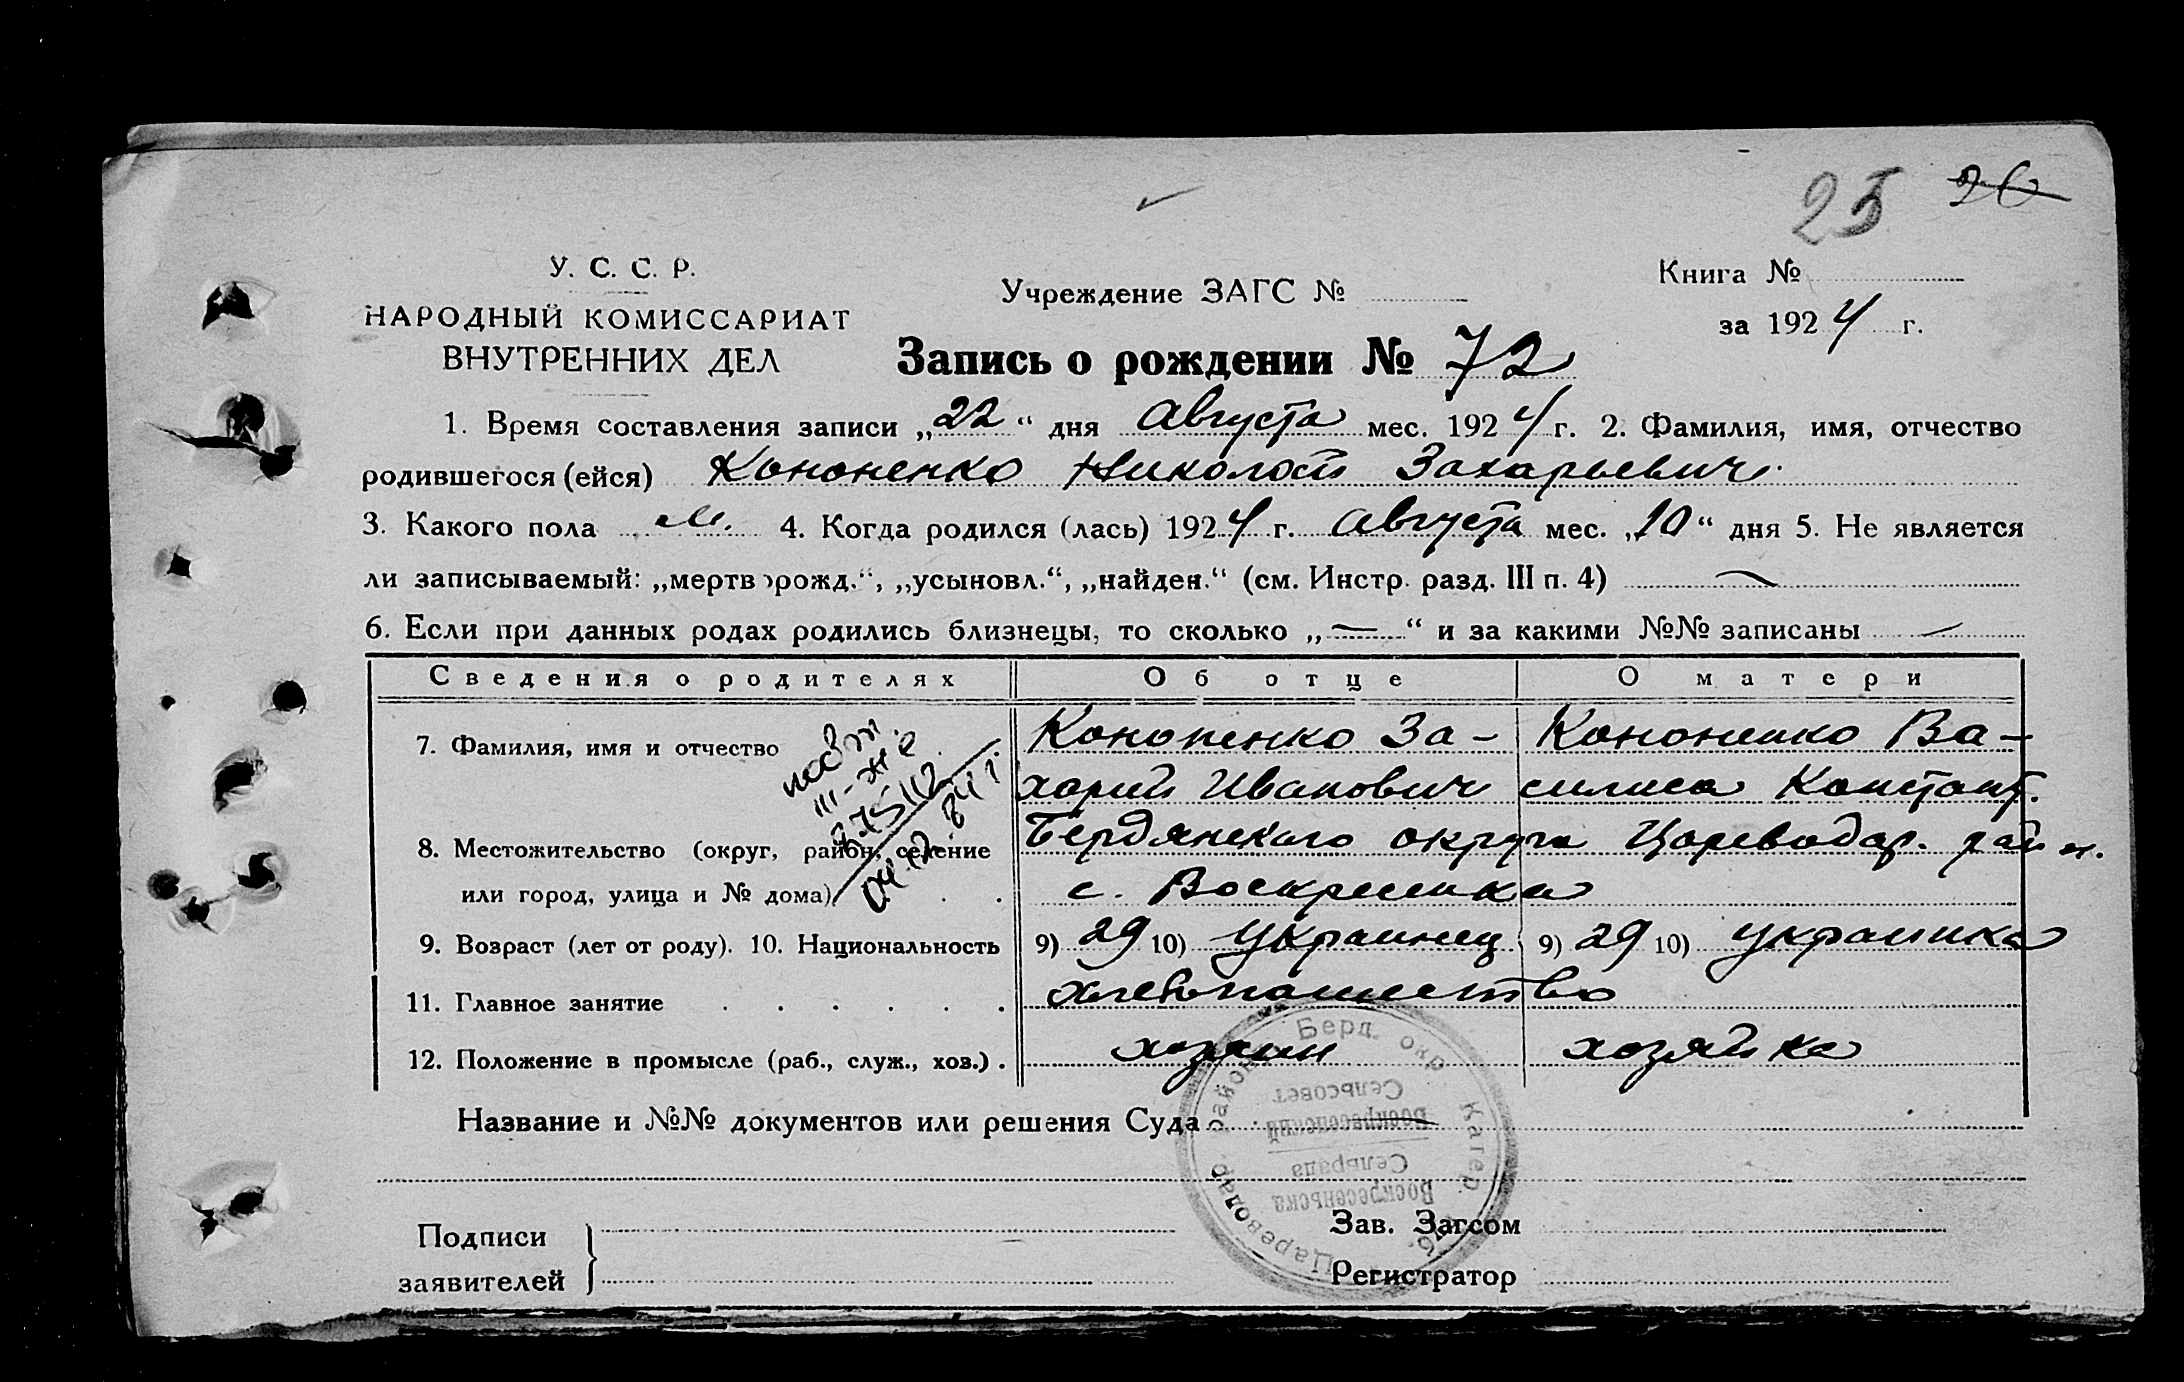 25 26
У. С. С. Р.
НАРОДНЫЙ КОМИССАРИАТ
ВНУТРЕННИХ ДЕЛ
Учреждение ЗАГС №
Книга №
за 1924 г.
Запись о рождении № 72
1. Время составления записи „22“ дня Августа мес. 1924 г. 2. Фамилия, имя, отчество
родившегося (ейся) Кононенко Николай Захарьевич
3. Какого пола м. 4. Когда родился (лась) 1924 г. Августа мес. „10“ дня 5. Не является
ли записываемый: „мертворожд.“, „усыновл.“, „найден.“ (см. Инстр. разд. III п. 4) —
6. Если при данных родах родились близнецы, то сколько „—“ и за какими №№ записаны —
Сведения о родителях Об отце О матери
7. Фамилия, имя и отчество Кононенко За- Кононенко Ва-
харий Иванович силиса Констант.
8. Местожительство (округ, район, селение Бердянского округа Цареводар. район.
или город, улица и № дома) с. Воскресенка
9. Возраст (лет от роду). 10. Национальность 9) 29 10) Украинец 9) 29 10) украинка
11. Главное занятие хлебопашество
12. Положение в промысле (раб., служ., хоз.) хозяин хозяйка
Название и №№ документов или решения Суда —
Берд. окр. Катер. губ. Цареводар. района
Сельсовет
Воскресенский
Сельрада
Воскресеньска
Подписи
заявителей
Зав. Загсом
Регистратор